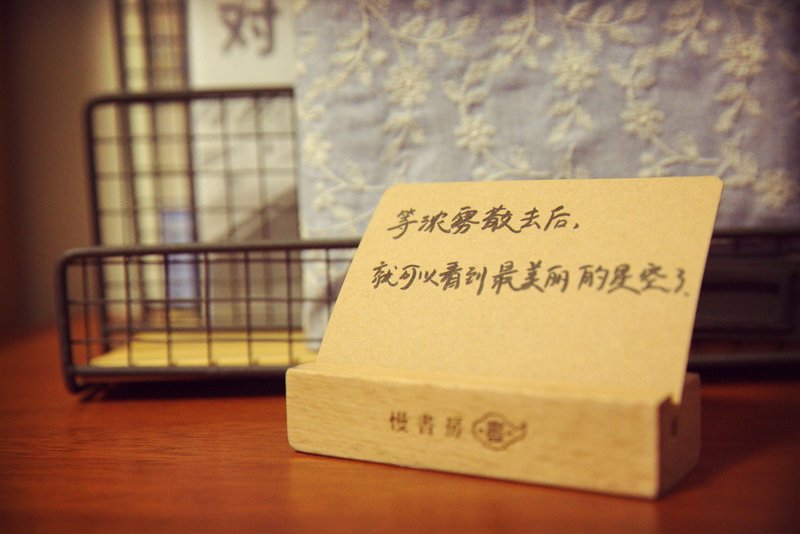 对
等浓雾散去后,
就可以看到最美丽的星空了.
慢書房